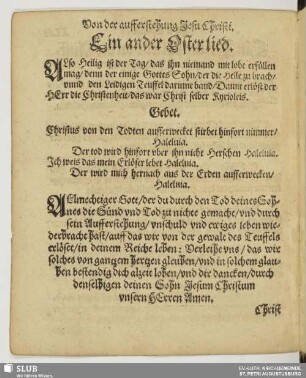 Von der aufferstehung Jesu Christi.
Ein ander Osterlied.
ALso Heilig ist der Tag/ das ihn niemand mit lobe erfüllen
mag/ denn der einige Gottes Sohn/ der die Helle zu brach/
vnnd den Leidigen Teuffel darinne band/ Damit erlöst der
HErr die Christenheit/ das war Christ selber Kyrioleis.
Gebet.
Christus von den Todten aufferwecket stirbet hinfort nimmer/
Haleluia.
Der tod wird hinfort vber ihn nicht Herschen Haleluia.
Ich weis das mein Erlöser lebet Haleluia.
Der wird mich hernach aus der Erden aufferwecken/
Haleluia.
ALmechtiger Gott/ der du durch den Tod deines Soh-
nes die Sünd vnd Tod zu nichte gemacht/ vnd durch
sein Aufferstehung/ vnschuld vnd ewiges leben wi-
derbracht hast/ auff das wir von der gewalt des Teuffels
erlöset/ in deinem Reiche leben: Verleihe vns/ das wir
solches von gantzem hertzen gleuben/ vnd in solchem glau-
ben bestendig dich alzeit loben/ vnd dir dancken/ durch
denselbigen deinen Sohn Jesum Christum
vnsern HErren Amen.
Christ
SLUB
Wir führen Wissen.
EV.-LUTH. KIRCHGEMEINDE
ST. PETRI AUGUSTUSBURG